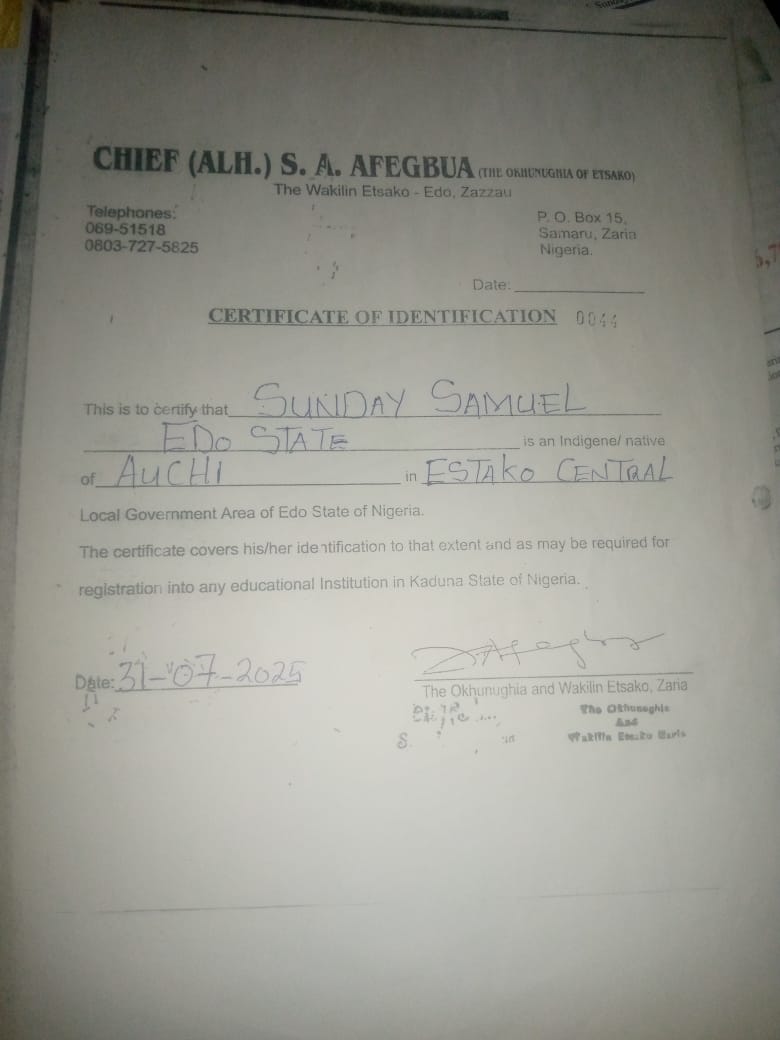 CHIEF (ALH.) S. A. AFEGBUA (THE OKHUNUGHIA OF ETSAKO)
The Wakilin Etsako - Edo, Zazzau
Telephones:
069-51518
0803-727-5825
P. O. Box 15,
Samaru, Zaria
Nigeria.
Date:
CERTIFICATE OF IDENTIFICATION 0044
This is to certify that SUNDAY SAMUEL
EDO STATE is an Indigene/ native
of AUCHI in ESTAKO CENTRAL
Local Government Area of Edo State of Nigeria.
The certificate covers his/her identification to that extent and as may be required for
registration into any educational Institution in Kaduna State of Nigeria.
Date: 31-07-2025
The Okhunughia and Wakilin Etsako, Zaria
The Okhunughia
And
Wakilin Etsako